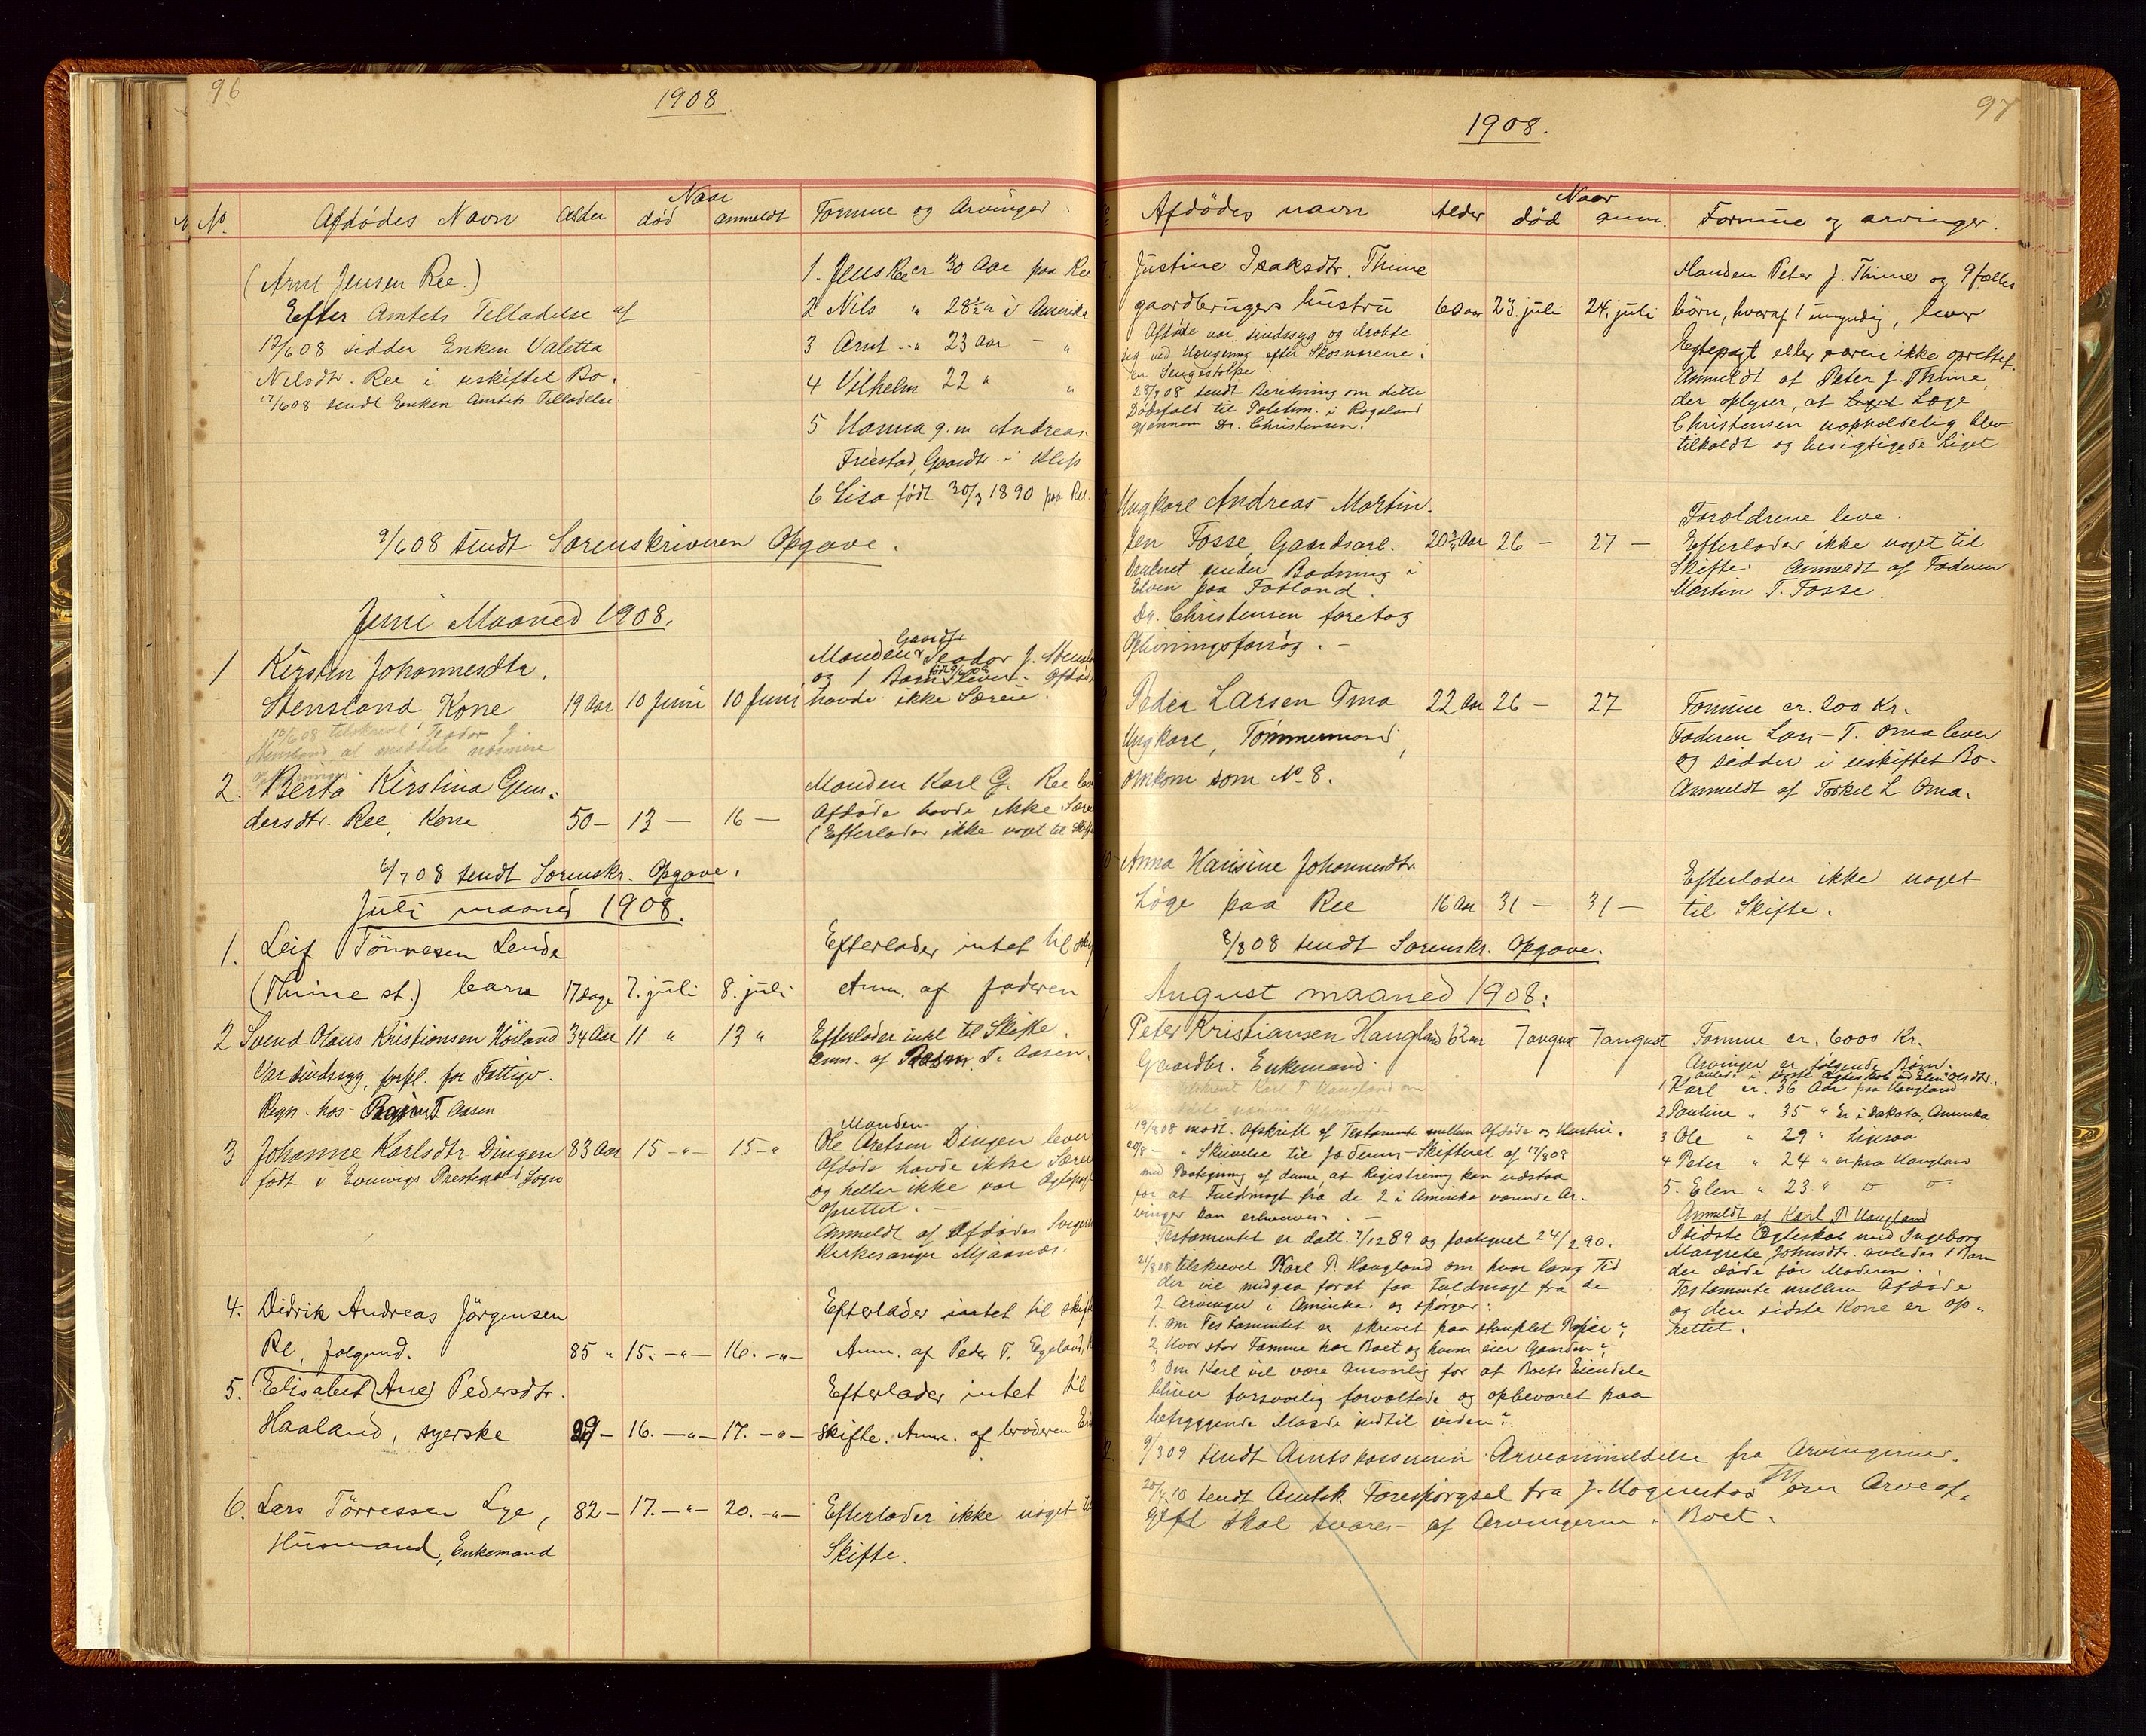 96
1908
No. Afdødes Navn Alder Naar død anmeldt Formue og Arvinger
(Arnt Jensen Ree.)
Efter Amtets Tilladelse af
12/6 08 sidder Enken Valetta
Nilsdtr. Ree i uskiftet Bo.
17/6 08 sendt Enken Amtets Tilladelse
1. Jens Ree er 30 Aar paa Ree
2 Nils " 28½ " i Amerika
3 Arnt " 23 Aar - "
4 Vilhelm 22 " "
5 Hanna g.m. Andreas
Friestad, Gaardbr. i Klep
6 Lisa født 30/3 1890 paa Ree
9/6 08 sendt Sorenskriveren Opgave.
Juni Maaned 1908.
1 Kirsten Johannesdtr.
Stensland, Kone 19 Aar 10 Juni 10 Juni
Manden Gaardbr. Teodor J. Stensl
og 1 Barn lever. Afdøde
havde ikke Særeie.
12/6 08 tilskrevet Teodor J.
Stensland at meddele nærmere
2. Berta Kirstina Gun-
dersdtr. Ree, Kone 50 - 13 - 16 -
Manden Karl G. Ree lever
Afdøde havde ikke Særeie
(Efterlader ikke noget til Skifte
6/7 08 sendt Sorenskr. Opgave.
Juli maaned 1908.
1. Leif Tönnesen Lende
(Thime st.) barn 17 dage 7. juli 8. juli
Efterlader intet til skif
Anm. af faderen
2 Svend Olaus Kristiansen Höiland 34 Aar 11 " 13 "
Var sindssyg, forpl. for Fattigv.
Regn. hos Rasm T. Aasen
Efterlader intet til Skifte.
Anm. af Rasm. T. Aasen.
3 Johanne Karlsdtr. Dingen 83 Aar 15 -"- 15 -"
født i Prestegjeld Sogn
Manden
Ole Aretsen Dingen lever
Afdøde havde ikke Særeie
og heller ikke var Ægtepagt
oprettet.
Anmeldt af Afdødes Svigersøn
Kirkesanger Mjaanæs.
4. Didrik Andreas Jörgensen
Re, folgemd. 85 " 15. -"- 16. -"-
Efterlader intet til skift
Anm. af Peder T. Egeland,
5. Elisabet (Ane) Pedersdtr.
Haaland, syerske 29 - 16. -"- 17. -"-
Efterlader intet til
skifte. Anm. af broderen
6. Lars Törressen Lye, 82 - 17. -"- 20. -"-
Husmand, Enkemand
Efterlader ikke noget til
Skifte.
97
1908.
Afdødes navn Alder Naar død anm. Formue og arvinger.
Justine Isaksdtr. Thime
gaardbrugers hustru 60 aar 23. juli 24. juli
Afdøde var sindssyg og dræbte
sig ved Hængning efter Skosnorene i
en Sengestolpe.
28/7 08 sendt Beretning om dette
Dødsfald til Politim. i Rogaland
gjennem Dr. Christensen.
Manden Peter J. Thime og 9 fælles
börn, hvoraf 1 umyndig, lever
Egtepagt eller særeie ikke oprettet.
Anmeldt af Peter J. Thime,
der oplyser, at Læge
Christensen uopholdelig blev
tilkaldt og besigtigede Liget
Ungkarl Andreas Martin-
sen Fosse, Gaardsarb. 20¾ Aar 26 - 27 -
Druknet under Badning i
Elven paa Fotland.
Dr. Christensen foretog
Oplivningsforsøg. -
Forældrene leve.
Efterlader ikke noget til
Skifte. Anmeldt af Faderen
Martin T. Fosse.
Peder Larsen Oma 22 Aar 26 - 27
Ungkarl, Tömmermand,
omkom som No 8.
Formue ca. 200 Kr.
Faderen Lars T. Oma lever
og sidder i uskiftet Bo.
Anmeldt af Torkel L Oma.
Anna Hansine Johannesdtr.
Løge paa Ree 16 Aar 31 - 31 -
Efterlader ikke noget
til Skifte.
8/8 08 sendt Sorenskr. Opgave.
August maaned 1908:
Peter Kristiansen Haugland 62 aar 7 august 7 august
Gaardbr. Enkemand.
Formue ca. 6000 Kr.
Arvinger er følgende Børn:
avlede i første Ægteskab med Elen Olsdtr.
1 Karl er 36 Aar paa Haugland
2 Pauline " 35 " Er i Dakota, Amerika
3 Ole " 29 " Ligesaa
4 Peter " 24 " er paa Haugland
5. Elen " 23 "
Anmeldt af Karl P. Haugland
I sidste Ægteskab med Ingeborg
Margrete Johnsdtr. avledes 1 Barn
der døde før Moderen.
Testamente mellem Afdøde
og den sidste Kone er op-
rettet.
tilskrevet Karl P. Haugland om
19/8 08 modt. Afskrift af Testamente mellem Afdøde og Hustru.
20/8 - " Skrivelse til Jæderens Skifteret af 17/8 08
med Paategning af denne, at Registrering kan udstaa
for at Fuldmagt fra de 2 i Amerika værende Ar-
vinger kan erhverves. -
Testamentet er datt. 7/12 89 og paategnet 24/2 90.
21/8 08 tilskrevet Karl P. Haugland om hvor lang Tid
der vil medgaa forat faa Fuldmagt fra de
2 Arvinger i Amerika og spørger:
1. Om Testamentet er skrevet paa stemplet Papir?
2. Hvor stor Formue har Boet og hvem eier Gaarden?
3 Om Karl vil være ansvarlig for at Boets Eiendele
bliver forsvarlig forvaltede og opbevaret paa
betryggende Maade indtil videre?
9/3 09 sendt Amtskassereren Arveanmeldelse fra Arvingerne.
20/4 10 sendt Amtsk. Forespørgsel fra J. Hognestad om Arveaf-
gift skal svares af Arvingerne i Boet.